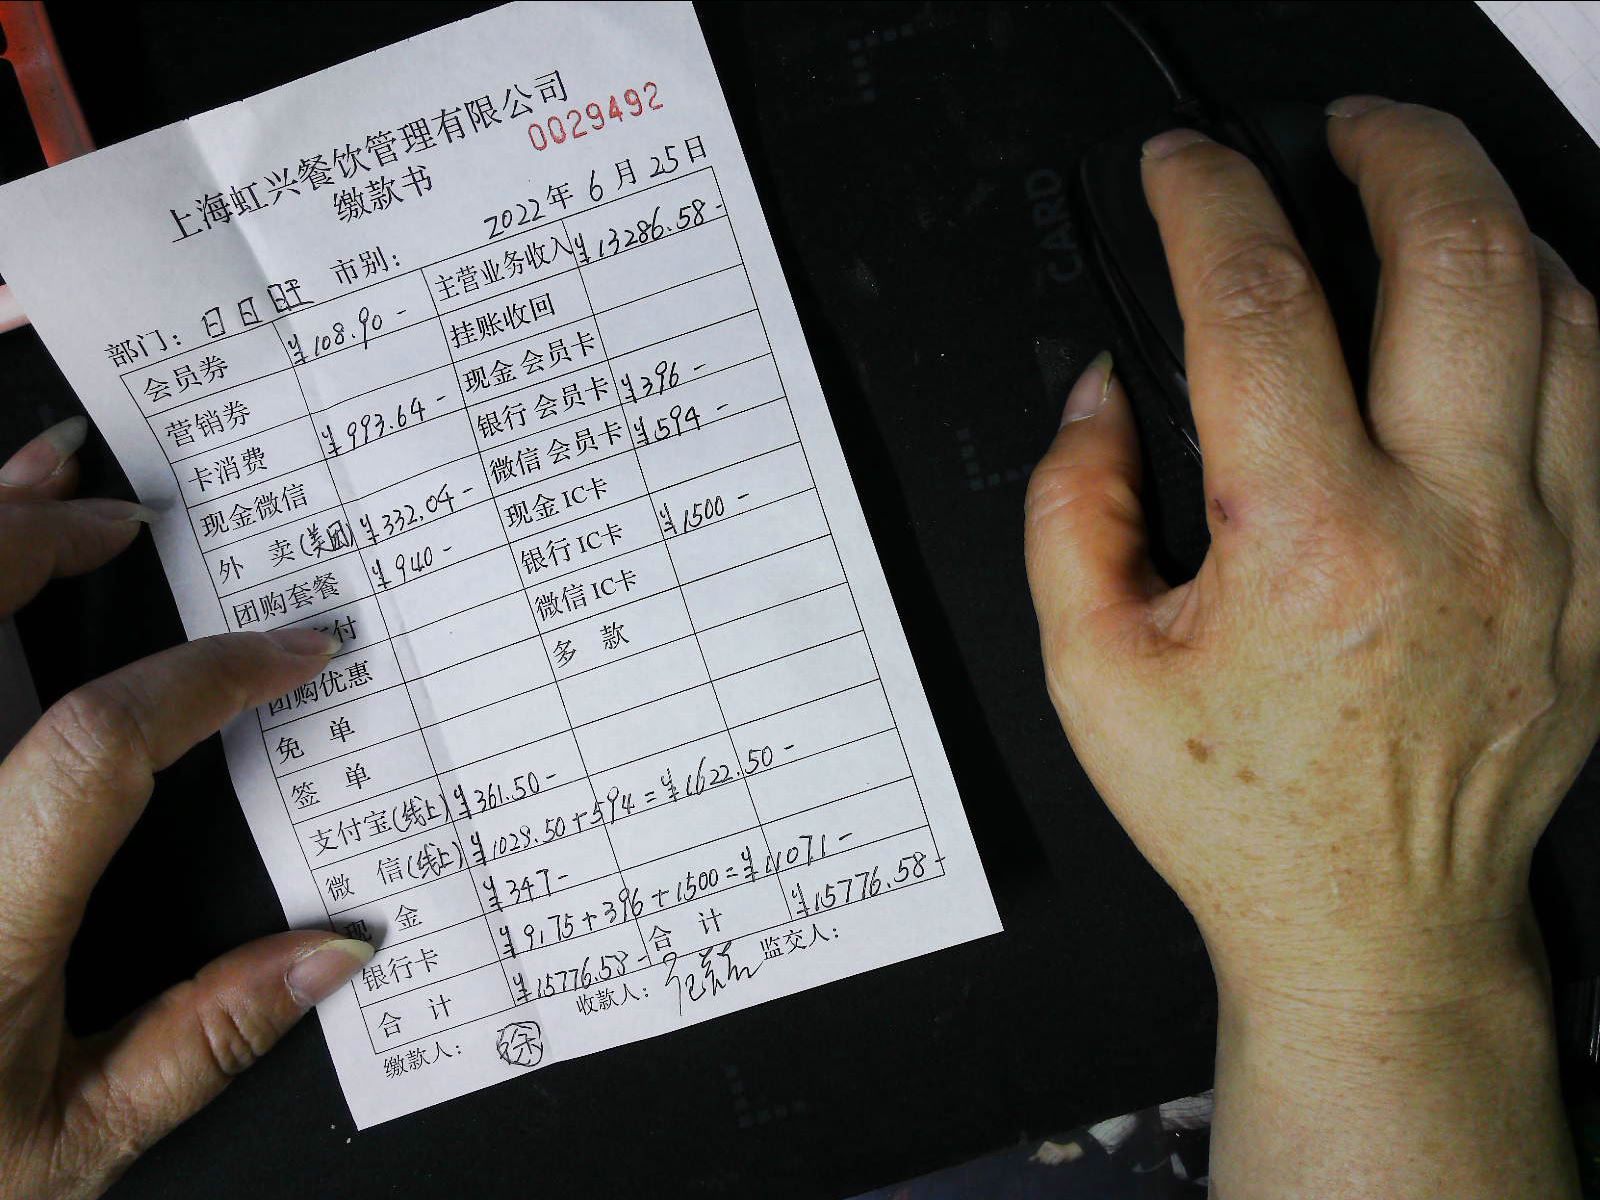 上海虹兴餐饮管理有限公司
0029492
缴款书
2022年 6月 25日
部门：日日旺 市别：
会员券 ¥108.90- 主营业务收入 ¥13286.58-
营销券 挂账收回
卡消费 ¥993.64- 现金会员卡
现金微信 银行会员卡 ¥396-
外 卖(美团) ¥332.04- 微信会员卡 ¥594-
团购套餐 ¥940- 现金IC卡
付 银行IC卡 ¥1500-
团购优惠 微信IC卡
免 单 多 款
签 单
支付宝(线上) ¥361.50-
微 信(线上) ¥1029.50+594=¥1622.50-
现 金 ¥347-
银行卡 ¥9175+396+1500=¥11071-
合 计 ¥15776.58- 合 计 ¥15776.58-
缴款人： 徐 收款人： 监交人：
CARD